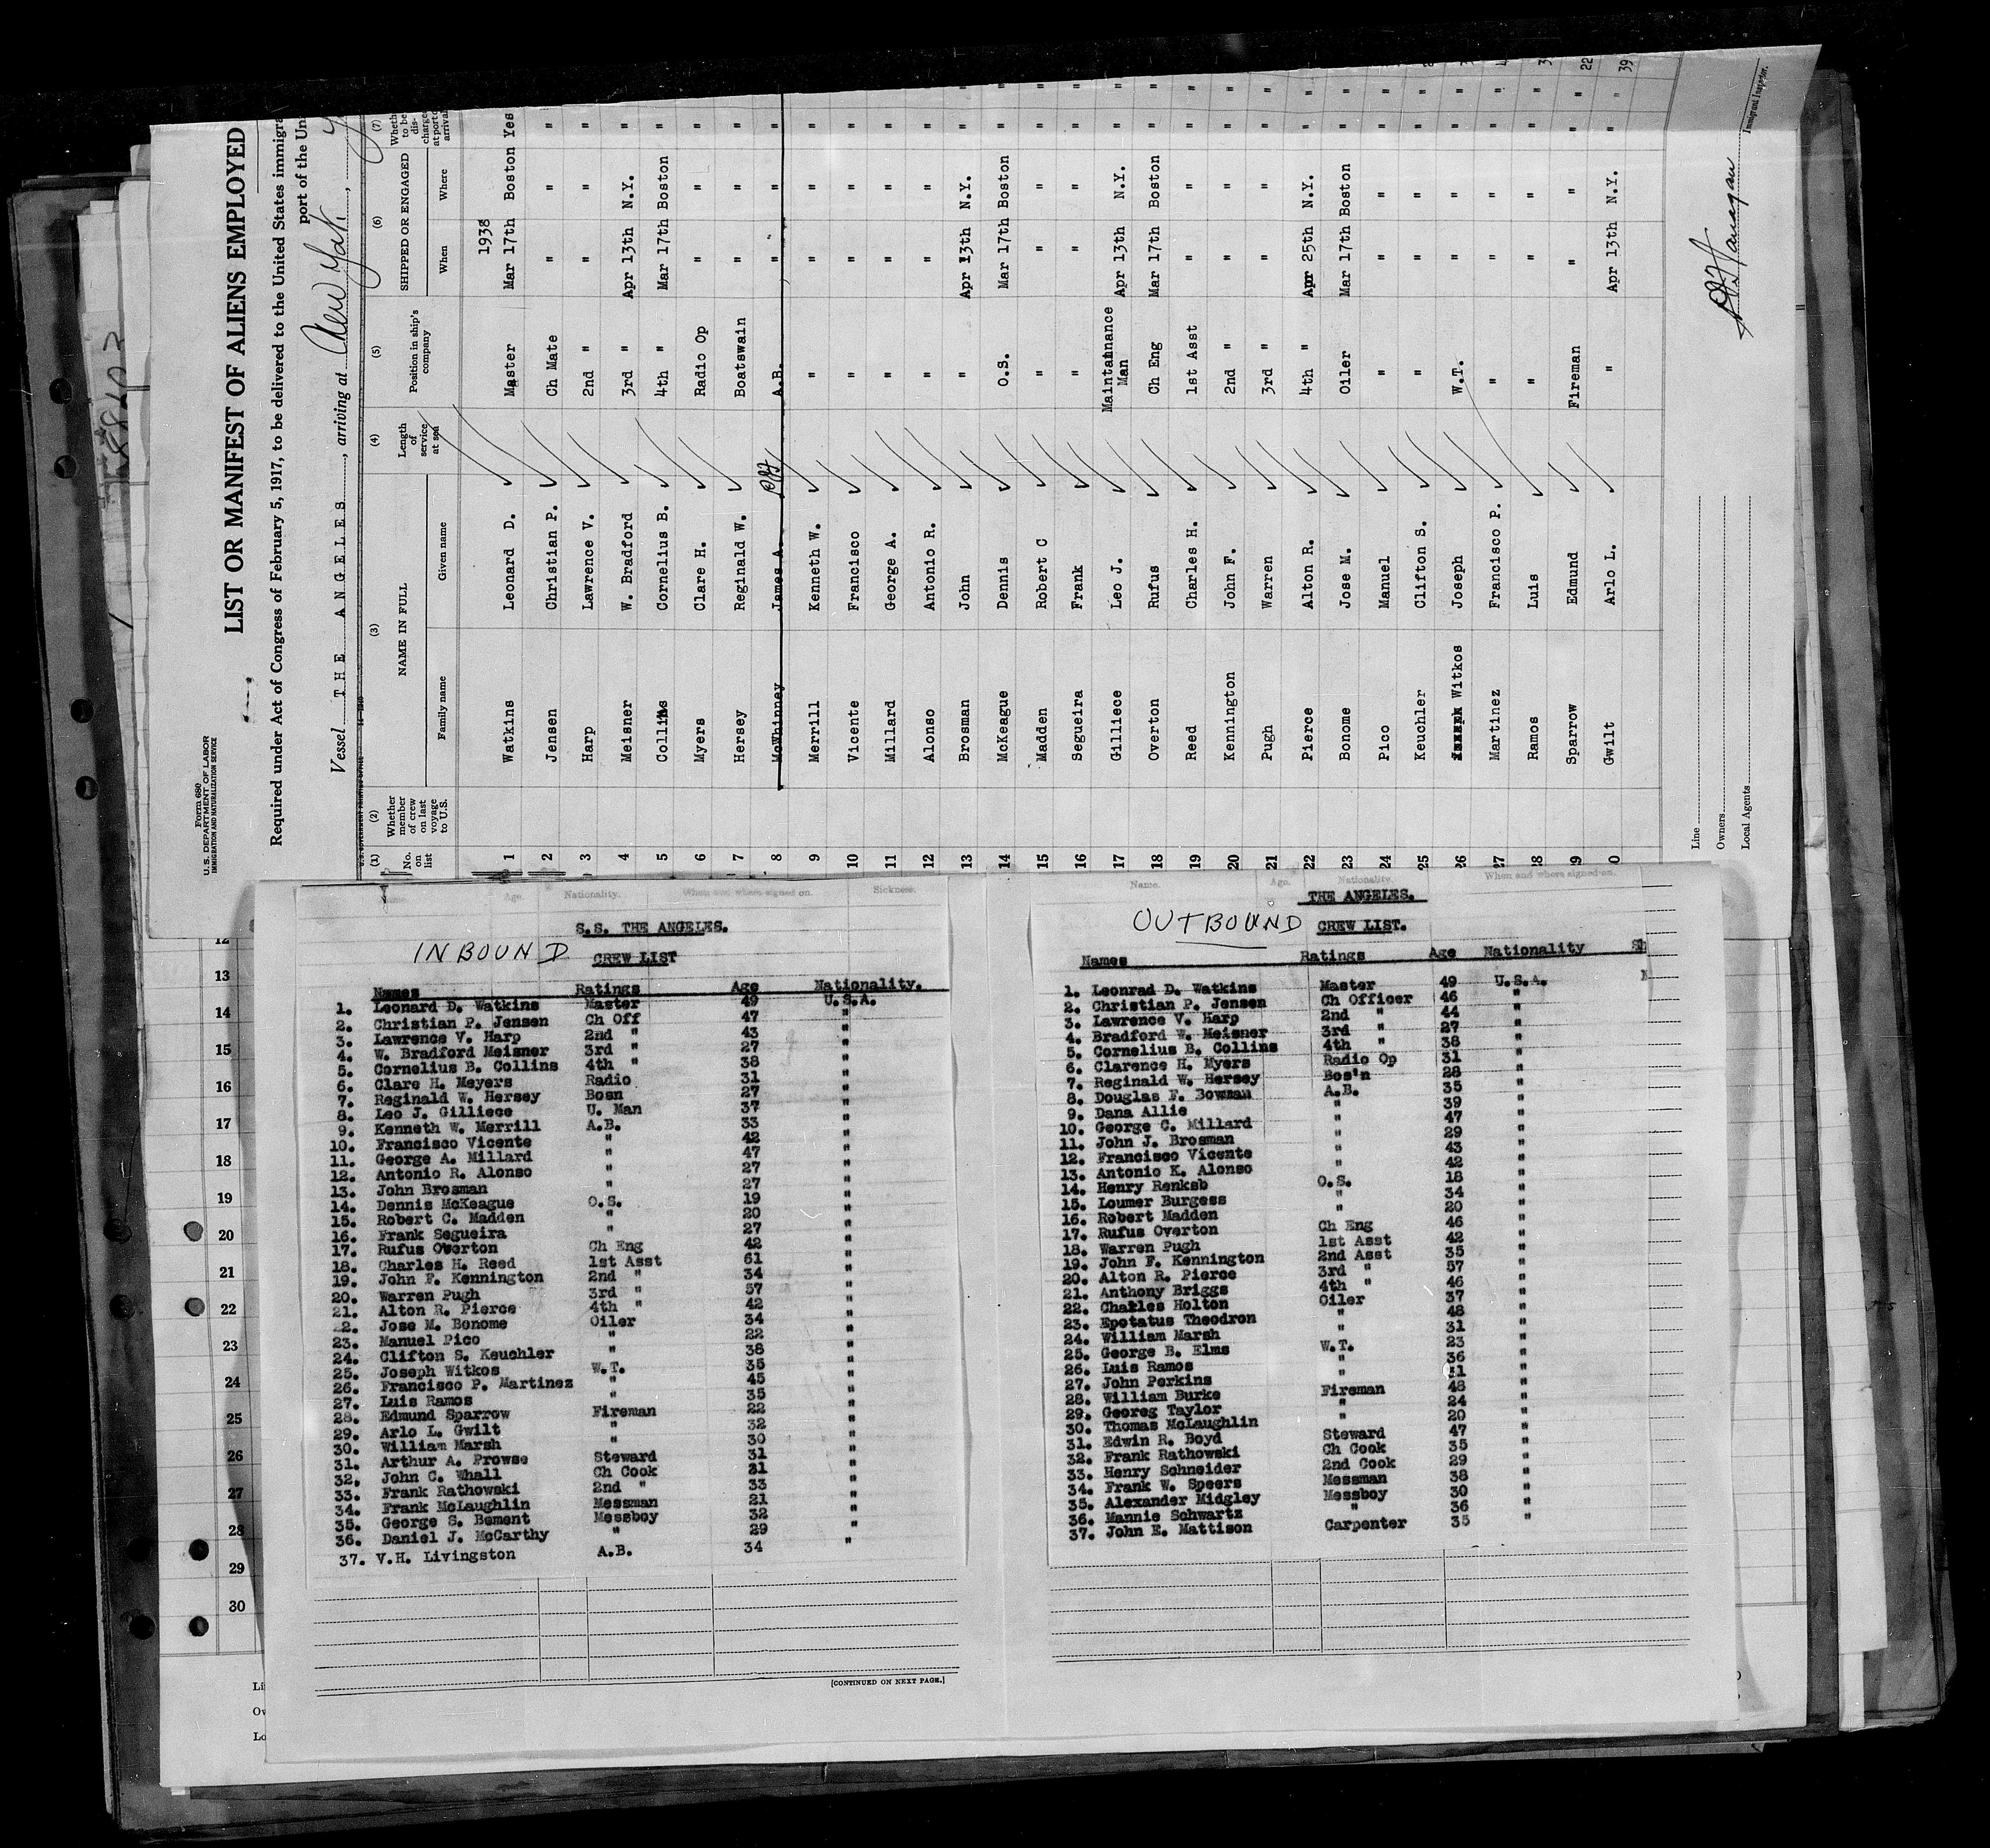 Form 680
U.S. DEPARTMENT OF LABOR
IMMIGRATION AND NATURALIZATION SERVICE
LIST OR MANIFEST OF ALIENS EMPLOYED
Required under Act of Congress of February 5, 1917, to be delivered to the United States immigra
port of the Uni
Vessel THE ANGELES, arriving at New York,
(1) (2) (3) (4) (5) (6) (7)
No. on list Whether member of crew on last voyage to U.S. NAME IN FULL Length of service at sea Position in ship's company SHIPPED OR ENGAGED Wheth to be dis- charged at port o arrival
Family name Given name When Where
1938
1 Watkins Leonard D. Master Mar 17th Boston Yes
2 Jensen Christian P. Ch Mate " " "
3 Harp Lawrence V. 2nd " " " "
4 Meisner W. Bradford 3rd " Apr 13th N.Y. "
5 Collins Cornelius B. 4th " Mar 17th Boston "
6 Myers Clare H. Radio Op " " "
7 Hersey Reginald W. Boatswain " " "
8 McWhinney James A. A.B. " " "
9 Merrill Kenneth W. " " " "
10 Vicente Francisco " " " "
11 Millard George A. " " " "
12 Alonso Antonio R. " " " "
13 Brosman John " Apr 13th N.Y. " "
14 McKeague Dennis O.S. Mar 17th Boston " "
15 Madden Robert C " " " " "
16 Segueira Frank " " " " "
17 Gilliece Leo J. Maintainnance Man Apr 13th N.Y. " "
18 Overton Rufus Ch Eng Mar 17th Boston " "
19 Reed Charles H. 1st Asst " " " "
20 Kennington John F. 2nd " " " " "
21 Pugh Warren 3rd " " " " "
22 Pierce Alton R. 4th " Apr 25th N.Y. " "
23 Bonome Jose M. Oiler Mar 17th Boston " "
24 Pico Manuel " " " " "
25 Keuchler Clifton S. " " " " "
26 Witkos Joseph W.T. " " " "
27 Martinez Francisco P. " " " " "
28 Ramos Luis " " " " "
9 Sparrow Edmund Fireman " " " " 22
0 Gwilt Arlo L. " Apr 13th N.Y. " " 39
Line
Owners
Local Agents
Immigrant Inspector.
12
13
14
15
16
17
18
19
20
21
22
23
24
25
26
27
28
29
30
Li
Ow
Lo
Name. Age. Nationality. When and where signed on. Sickness.
S.S. THE ANGELES.
INBOUND CREW LIST
Names Ratings Age Nationality.
1. Leonard D. Watkins Master 49 U.S.A.
2. Christian P. Jensen Ch Off 47 "
3. Lawrence V. Harp 2nd " 43 "
4. W. Bradford Meisner 3rd " 27 "
5. Cornelius B. Collins 4th " 38 "
6. Clare H. Meyers Radio 31 "
7. Reginald W. Hersey Bosn 27 "
8. Leo J. Gilliece U. Man 37 "
9. Kenneth W. Merrill A.B. 33 "
10. Francisco Vicente " 42 "
11. George A. Millard " 47 "
12. Antonio R. Alonso " 27 "
13. John Brosman " 27 "
14. Dennis McKeague O.S. 19 "
15. Robert C. Madden " 20 "
16. Frank Segueira " 27 "
17. Rufus Overton Ch Eng 42 "
18. Charles H. Reed 1st Asst 61 "
19. John F. Kennington 2nd " 34 "
20. Warren Pugh 3rd " 57 "
21. Alton R. Pierce 4th " 42 "
2. Jose M. Bonome Oiler 34 "
23. Manuel Pico " 22 "
24. Clifton S. Keuchler " 38 "
25. Joseph Witkos W.T. 35 "
26. Francisco P. Martinez " 45 "
27. Luis Ramos " 35 "
28. Edmund Sparrow Fireman 22 "
29. Arlo L. Gwilt " 32 "
30. William Marsh " 30 "
31. Arthur A. Prowse Steward 31 "
32. John C. Whall Ch Cook 31 "
33. Frank Rathowski 2nd " 33 "
34. Frank McLaughlin Messman 21 "
35. George S. Bement Messboy 32 "
36. Daniel J. McCarthy " 29 "
37. V.H. Livingston A.B. 34 "
[CONTINUED ON NEXT PAGE.]
Name. Age. Nationality. When and where signed on.
THE ANGELES.
OUTBOUND CREW LIST.
Names Ratings Age Nationality Sh
1. Leonrad D. Watkins Master 49 U.S.A.
2. Christian P. Jensen Ch Officer 46 "
3. Lawrence V. Harp 2nd " 44 "
4. Bradford W. Meisner 3rd " 27 "
5. Cornelius B. Collins 4th " 38 "
6. Clarence H. Myers Radio Op 31 "
7. Reginald W. Hersey Bos'n 28 "
8. Douglas F. Bowman A.B. 35 "
9. Dana Allie " 39 "
10. George C. Millard " 47 "
11. John J. Brosman " 29 "
12. Francisco Vicente " 43 "
13. Antonio K. Alonso " 42 "
14. Henry Renksb O.S. 18 "
15. Loumer Burgess " 34 "
16. Robert Madden " 20 "
17. Rufus Overton Ch Eng 46 "
18. Warren Pugh 1st Asst 42 "
19. John F. Kennington 2nd Asst 35 "
20. Alton R. Pierce 3rd " 57 "
21. Anthony Briggs 4th " 46 "
22. Charles Holton Oiler 37 "
23. Epotatus Theodron " 48 "
24. William Marsh " 31 "
25. George B. Elms W.T. 23 "
26. Luis Ramos " 36 "
27. John Perkins " 21 "
28. William Burke Fireman 48 "
29. Georeg Taylor " 24 "
30. Thomas McLaughlin " 20 "
31. Edwin R. Boyd Steward 47 "
32. Frank Rathowski Ch Cook 35 "
33. Henry Schneider 2nd Cook 29 "
34. Frank W. Speers Messman 38 "
35. Alexander Midgley Messboy 30 "
36. Mannie Schwartz " 36 "
37. John E. Mattison Carpenter 35 "